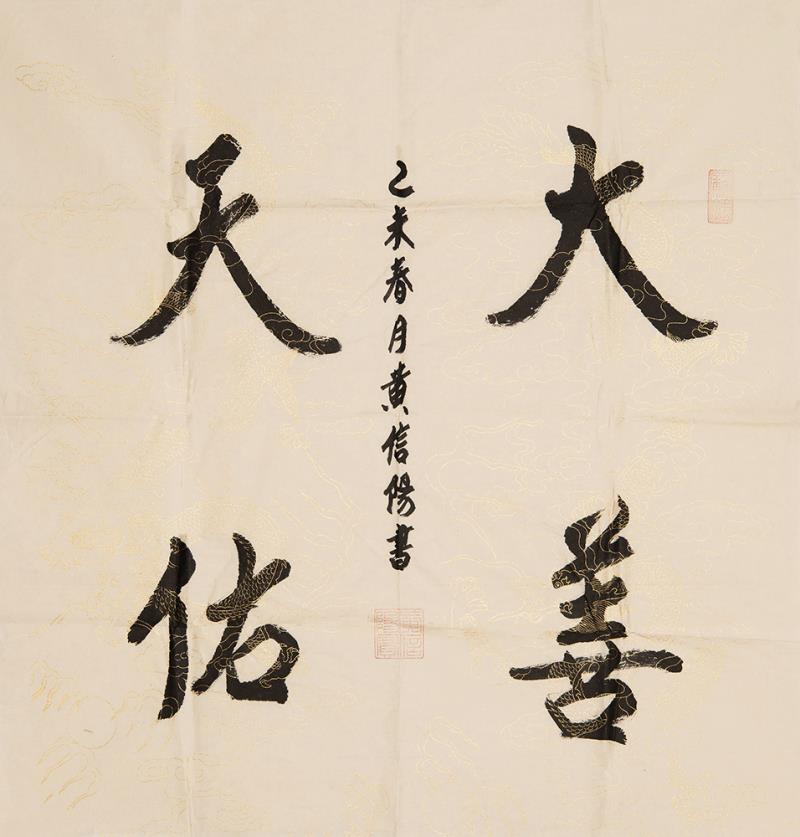 大善
天佑
乙未春月黄信陽書